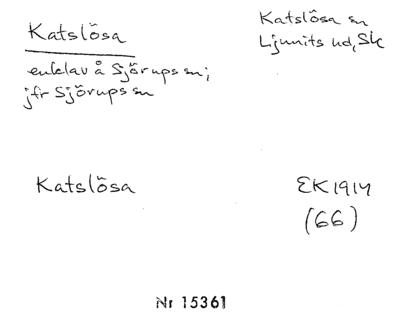 Katslösa
Katslösa sn
Ljunits hd, Sk
enklav å Sjörups sn;
jfr Sjörups sn
Katslösa
EK 1914
(66)
Nr 15361